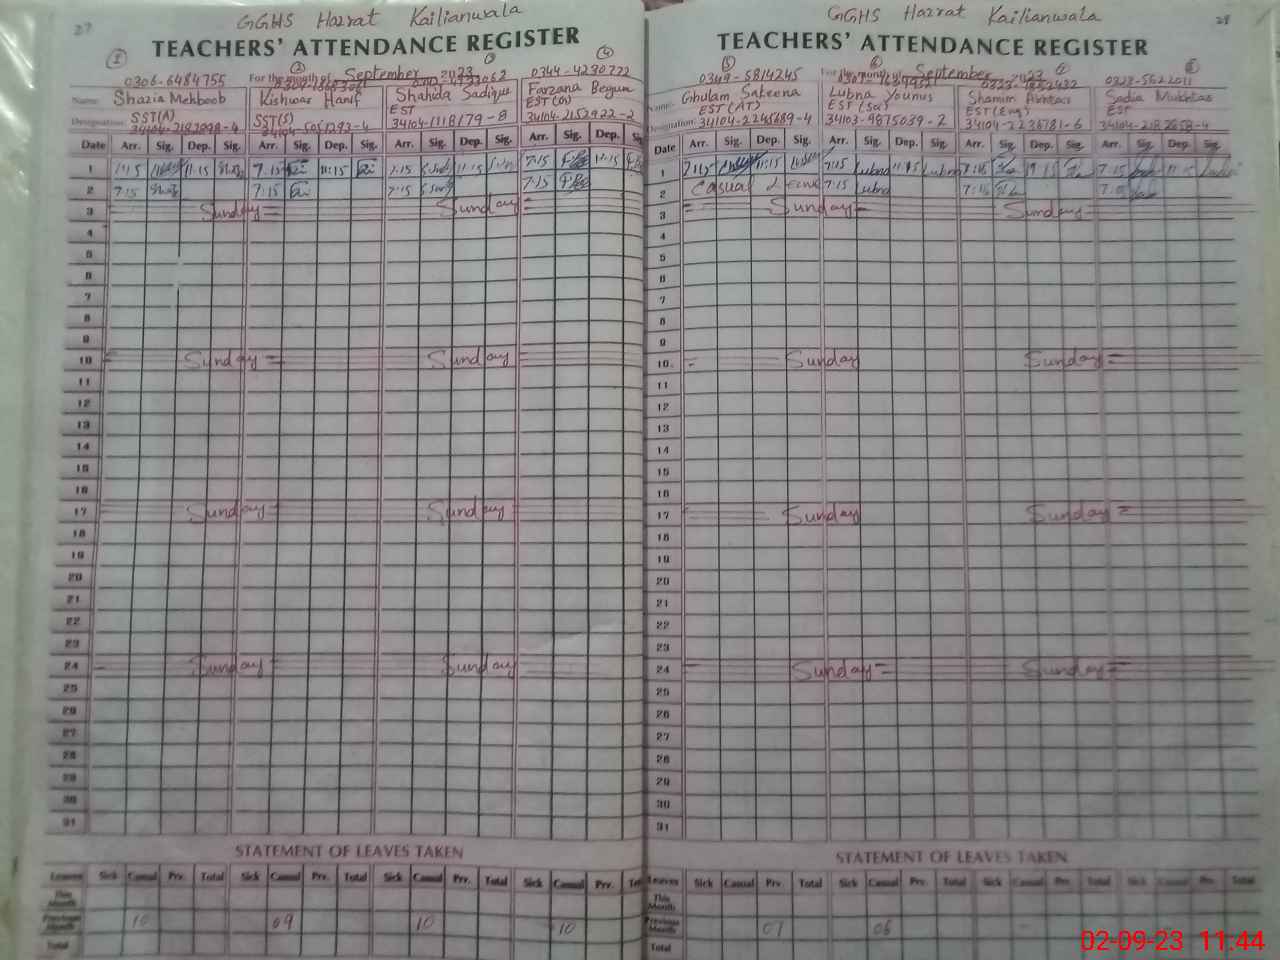 27
GGHS Hazrat Kailianwala
TEACHERS' ATTENDANCE REGISTER
1 2 3 4
0306-6484755 0344-4230772
For the month of September 2023
Name: Shazia Mehboob Kishwar Hanif Shahida Sadique Farzana Begum
Designation: SST(A) SST(S) EST EST(O)
34104-2182098-4 34104-5051293-4 34104-1118179-8 34104-2152922-2
Date Arr. Sig. Dep. Sig. Arr. Sig. Dep. Sig. Arr. Sig. Dep. Sig. Arr. Sig. Dep. Sig.
1 7:15 11:15 7:15 11:15 7:15 11:15 7:15 11:15
2 7:15 7:15 7:15 7:15
3 Sunday = Sunday =
4
5
6
7
8
9
10 Sunday = Sunday =
11
12
13
14
15
16
17 Sunday Sunday
18
19
20
21
22
23
24 Sunday Sunday
25
26
27
28
29
30
31
STATEMENT OF LEAVES TAKEN
Leaves Sick Casual Prv. Total Sick Casual Prv. Total Sick Casual Prv. Total Sick Casual Prv.
This Month
Previous Month 10 09 10 10
Total
28
GGHS Hazrat Kailianwala
TEACHERS' ATTENDANCE REGISTER
5 6
0349-5814245
For the month of September 2023
Name: Ghulam Sakeena Lubna Younus Shamim Akhtar Sadia Mukhtar
Designation: EST(AT) EST(Sci) EST(Eng) EST
34104-2245689-4 34103-9875039-2 34104-2236781-6
Date Arr. Sig. Dep. Sig. Arr. Sig. Dep. Sig. Arr. Sig. Dep. Sig. Arr. Sig. Dep. Sig.
1 7:15 11:15 7:15 Lubna 11:15 Lubna 7:15 7:15 11:15
2 Casual Leave 7:15 Lubna 7:15
3 Sunday = Sunday
4
5
6
7
8
9
10 Sunday Sunday =
11
12
13
14
15
16
17 Sunday Sunday =
18
19
20
21
22
23
24 Sunday = Sunday =
25
26
27
28
29
30
31
STATEMENT OF LEAVES TAKEN
Leaves Sick Casual Prv. Total Sick Casual Prv. Total Sick Casual Prv. Total Sick Casual Prv. Total
This Month
Previous Month 07 06
Total
02-09-23 11:44